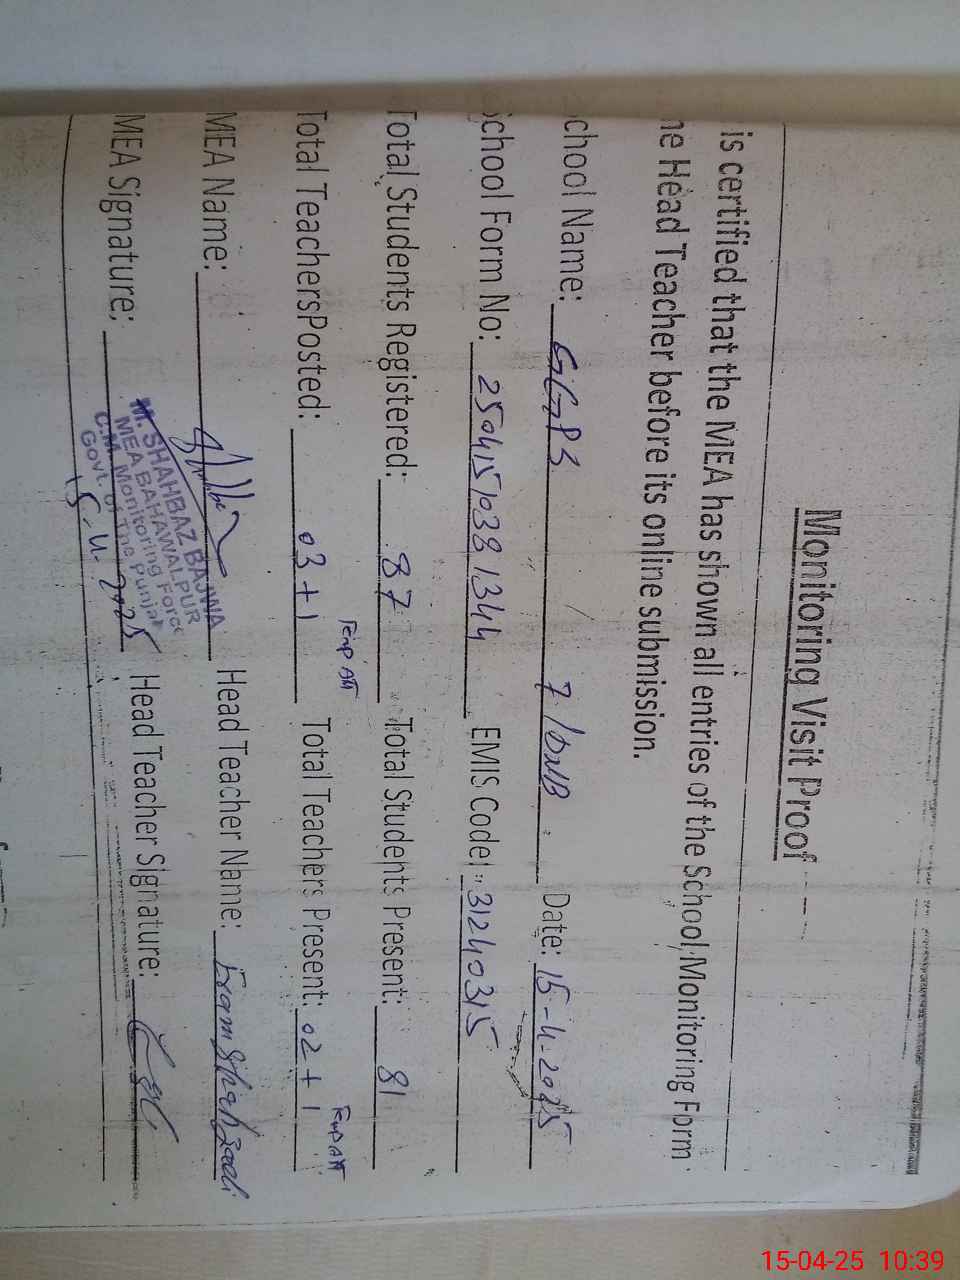 Monitoring Visit Proof
is certified that the MEA has shown all entries of the School Monitoring Form
he Head Teacher before its online submission.
chool Name: GGPS 7/DNB Date: 15-4-2025
School Form No: 250415038 1344 EMIS Code: 31240315
Total Students Registered: 87 Total Students Present: 81
Total TeachersPosted: 03+1 Total Teachers Present: 02+1
MEA Name: Head Teacher Name: Iram Shahzadi
M. SHAHBAZ BAJWA
MEA BAHAWALPUR
C.M. Monitoring Force
Govt. of The Punjab
MEA Signature: 15.4.2025 Head Teacher Signature:
15-04-25 10:39